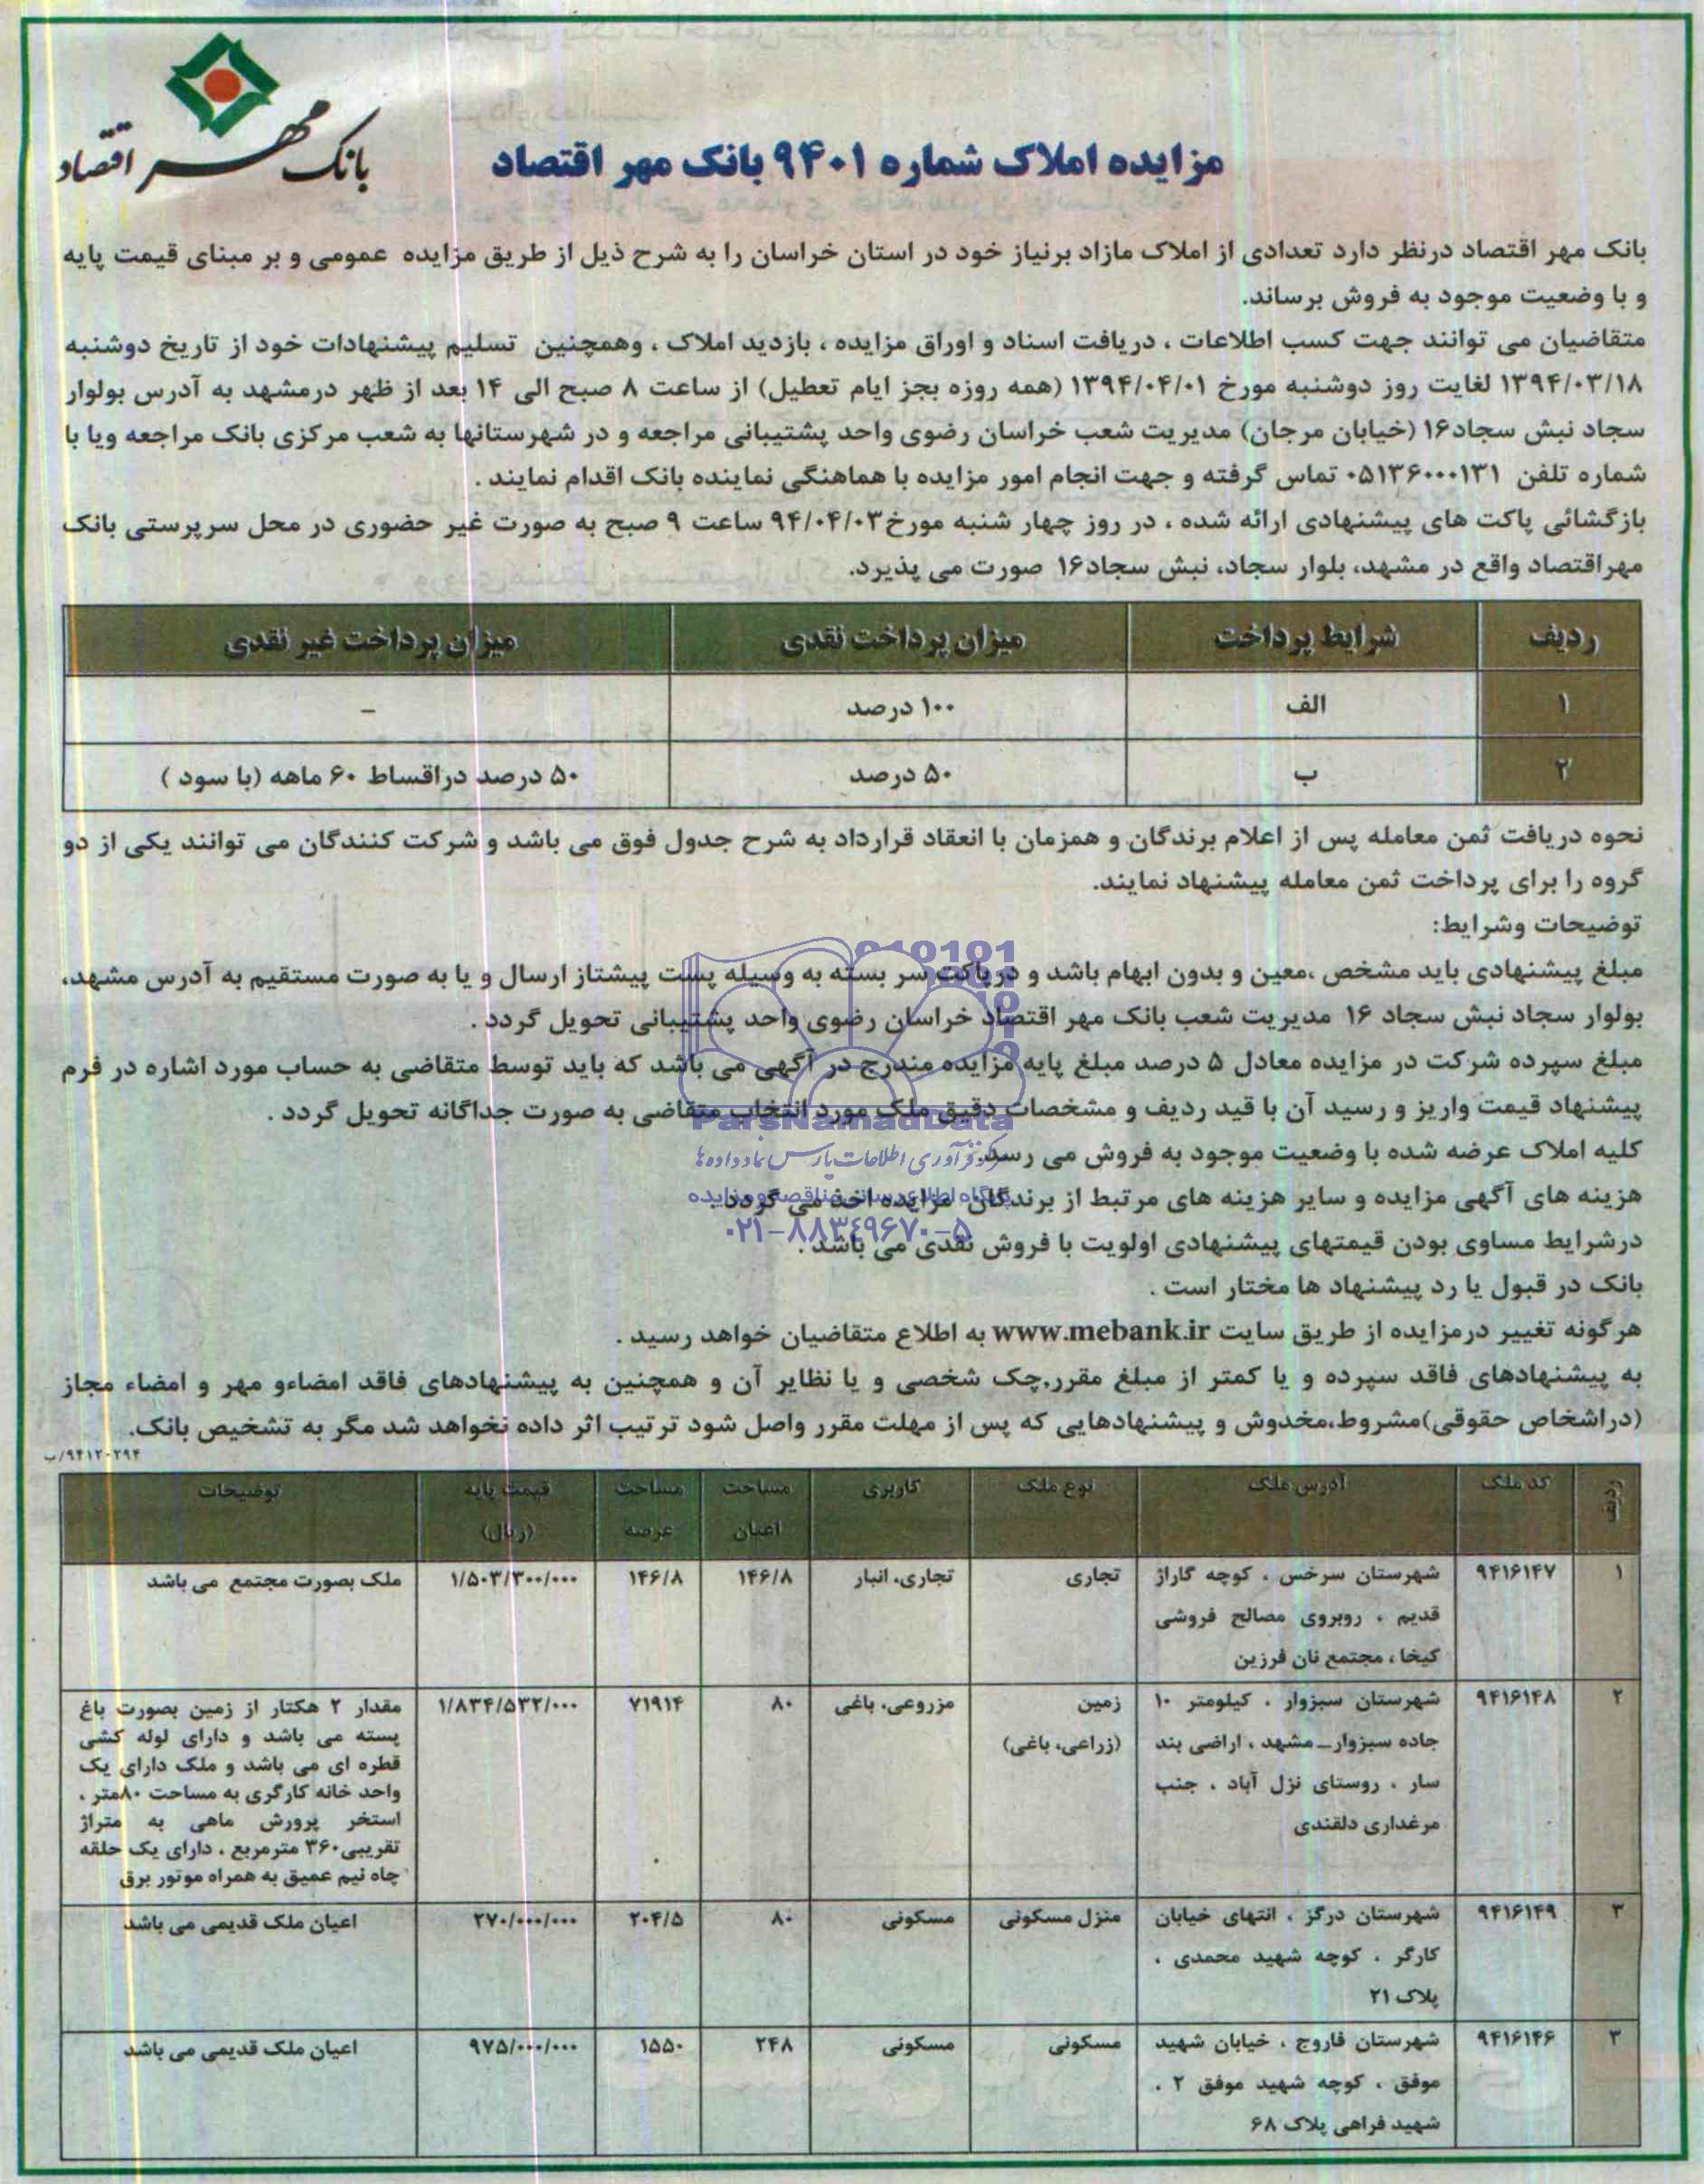 بانک مهر اقتصاد
مزایده املاک شماره ۹۴۰۱ بانک مهر اقتصاد
بانک مهر اقتصاد درنظر دارد تعدادی از املاک مازاد برنیاز خود در استان خراسان را به شرح ذیل از طریق مزایده عمومی و بر مبنای قیمت پایه
و با وضعیت موجود به فروش برساند.
متقاضیان می توانند جهت کسب اطلاعات ، دریافت اسناد و اوراق مزایده ، بازدید املاک ، وهمچنین تسلیم پیشنهادات خود از تاریخ دوشنبه
۱۳۹۴/۰۳/۱۸ لغایت روز دوشنبه مورخ ۱۳۹۴/۰۴/۰۱ (همه روزه بجز ایام تعطیل) از ساعت ۸ صبح الی ۱۴ بعد از ظهر درمشهد به آدرس بولوار
سجاد نبش سجاد۱۶ (خیابان مرجان) مدیریت شعب خراسان رضوی واحد پشتیبانی مراجعه و در شهرستانها به شعب مرکزی بانک مراجعه ویا با
شماره تلفن ۰۵۱۳۶۰۰۰۱۳۱ تماس گرفته و جهت انجام امور مزایده با هماهنگی نماینده بانک اقدام نمایند .
بازگشائی پاکت های پیشنهادی ارائه شده ، در روز چهار شنبه مورخ۹۴/۰۴/۰۳ ساعت ۹ صبح به صورت غیر حضوری در محل سرپرستی بانک
مهراقتصاد واقع در مشهد، بلوار سجاد، نبش سجاد۱۶ صورت می پذیرد.
ردیف شرایط پرداخت میزان پرداخت نقدی میزان پرداخت غیر نقدی
۱ الف ۱۰۰ درصد –
۲ ب ۵۰ درصد ۵۰ درصد دراقساط ۶۰ ماهه (با سود )
نحوه دریافت ثمن معامله پس از اعلام برندگان و همزمان با انعقاد قرارداد به شرح جدول فوق می باشد و شرکت کنندگان می توانند یکی از دو
گروه را برای پرداخت ثمن معامله پیشنهاد نمایند.
توضیحات وشرایط:
مبلغ پیشنهادی باید مشخص ،معین و بدون ابهام باشد و درپاکت سر بسته به وسیله پست پیشتاز ارسال و یا به صورت مستقیم به آدرس مشهد،
بولوار سجاد نبش سجاد ۱۶ مدیریت شعب بانک مهر اقتصاد خراسان رضوی واحد پشتیبانی تحویل گردد .
مبلغ سپرده شرکت در مزایده معادل ۵ درصد مبلغ پایه مزایده مندرج در آگهی می باشد که باید توسط متقاضی به حساب مورد اشاره در فرم
پیشنهاد قیمت واریز و رسید آن با قید ردیف و مشخصات دقیق ملک مورد انتخاب متقاضی به صورت جداگانه تحویل گردد .
ParsNamadData
کلیه املاک عرضه شده با وضعیت موجود به فروش می رسد.
مرکز فرآوری اطلاعات پارس نماد داده ها
هزینه های آگهی مزایده و سایر هزینه های مرتبط از برندگان مزایده اخذ می گردد.
پایگاه اطلاع رسانی مناقصه و مزایده
درشرایط مساوی بودن قیمتهای پیشنهادی اولویت با فروش نقدی می باشد .
۰۲۱-۸۸۳۴۹۶۷۰-۵
بانک در قبول یا رد پیشنهاد ها مختار است .
هرگونه تغییر درمزایده از طریق سایت www.mebank.ir به اطلاع متقاضیان خواهد رسید .
به پیشنهادهای فاقد سپرده و یا کمتر از مبلغ مقرر,چک شخصی و یا نظایر آن و همچنین به پیشنهادهای فاقد امضاءو مهر و امضاء مجاز
(دراشخاص حقوقی)مشروط،مخدوش و پیشنهادهایی که پس از مهلت مقرر واصل شود ترتیب اثر داده نخواهد شد مگر به تشخیص بانک.
۹۴۱۲۰۲۹۴/ب
ردیف کد ملک آدرس ملک نوع ملک کاربری مساحت اعیان مساحت عرصه قیمت پایه (ریال) توضیحات
۱ ۹۴۱۶۱۴۷ شهرستان سرخس ، کوچه گاراژ تجاری تجاری، انبار ۱۴۶/۸ ۱۴۶/۸ ۱/۵۰۳/۳۰۰/۰۰۰ ملک بصورت مجتمع می باشد
قدیم ، روبروی مصالح فروشی
کیخا ، مجتمع نان فرزین
۲ ۹۴۱۶۱۴۸ شهرستان سبزوار ، کیلومتر ۱۰ زمین مزروعی، باغی ۸۰ ۷۱۹۱۴ ۱/۸۳۴/۵۳۲/۰۰۰ مقدار ۲ هکتار از زمین بصورت باغ
جاده سبزوار_مشهد ، اراضی بند (زراعی، باغی) پسته می باشد و دارای لوله کشی
سار ، روستای نزل آباد ، جنب قطره ای می باشد و ملک دارای یک
مرغداری دلقندی واحد خانه کارگری به مساحت ۸۰متر ،
استخر پرورش ماهی به متراژ
تقریبی۳۶۰ مترمربع ، دارای یک حلقه
چاه نیم عمیق به همراه موتور برق
۳ ۹۴۱۶۱۴۹ شهرستان درگز ، انتهای خیابان منزل مسکونی مسکونی ۸۰ ۲۰۴/۵ ۲۷۰/۰۰۰/۰۰۰ اعیان ملک قدیمی می باشد
کارگر ، کوچه شهید محمدی ،
پلاک ۲۱
۳ ۹۴۱۶۱۴۶ شهرستان فاروج ، خیابان شهید مسکونی مسکونی ۲۴۸ ۱۵۵۰ ۹۷۵/۰۰۰/۰۰۰ اعیان ملک قدیمی می باشد
موفق ، کوچه شهید موفق ۲ ،
شهید فراهی پلاک ۶۸